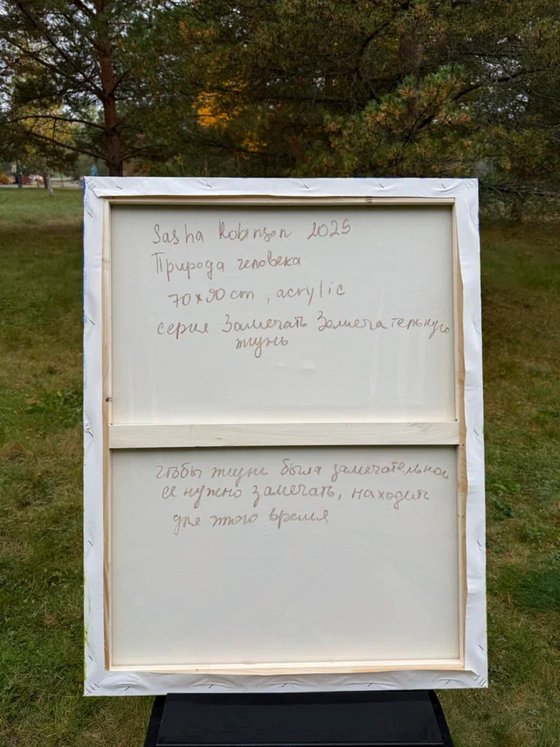 Sasha Robinson 2025
Природа человека
70x90cm, acrylic
серия Замечать Замечательную
жизнь
чтобы жизнь была замечательной
ее нужно замечать, находить
для этого время